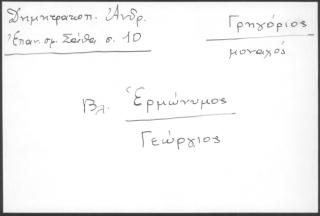 Δημητρακοπ. Ἀνδρ.
Ἐπαν. σμ. Σάθα σ. 10
Γρηγόριος
μοναχός
Βλ. Ἑρμώνυμος
Γεώργιος